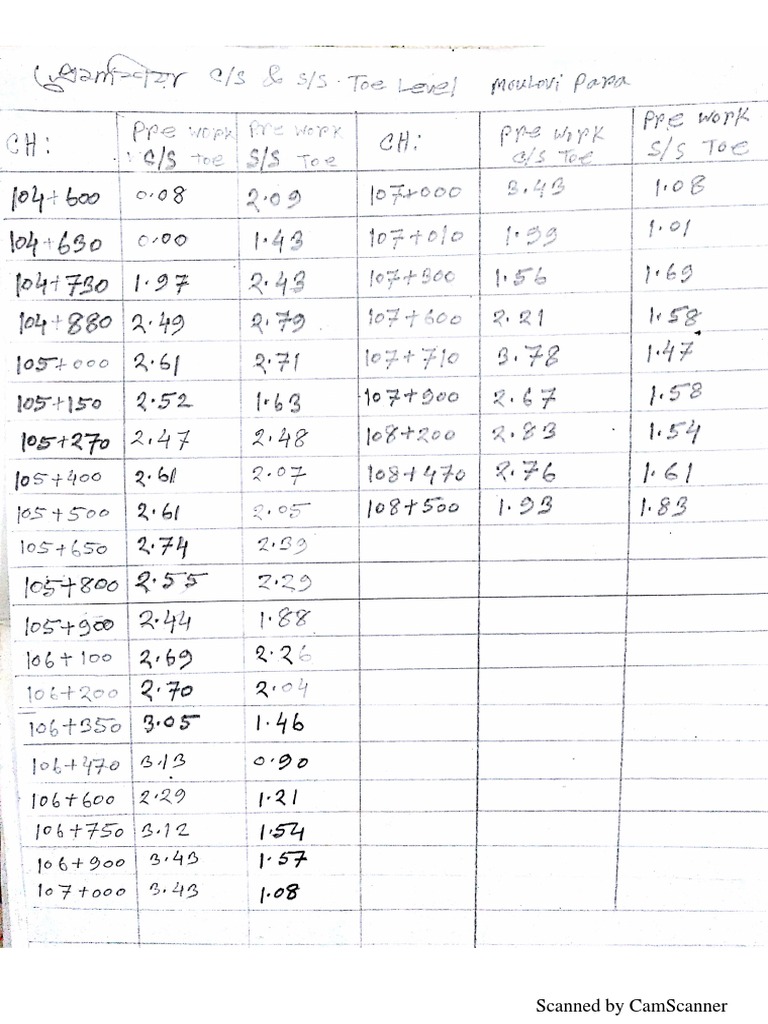 C/S & S/S. Toe Level Moulovi Para
CH: Pre work C/S toe Pre work S/S toe CH: Pre work C/S Toe Pre work S/S Toe
104+600 0.08 2.09 107+000 3.43 1.08
104+630 0.00 1.43 107+010 1.99 1.01
104+730 1.97 2.43 107+300 1.56 1.69
104+880 2.49 2.79 107+600 2.21 1.58
105+000 2.61 2.71 107+710 3.78 1.47
105+150 2.52 1.63 107+900 2.67 1.58
105+270 2.47 2.48 108+200 2.83 1.54
105+400 2.61 2.07 108+470 2.76 1.61
105+500 2.61 2.05 108+500 1.93 1.83
105+650 2.74 2.39
105+800 2.55 2.29
105+900 2.44 1.88
106+100 2.69 2.26
106+200 2.70 2.04
106+350 3.05 1.46
106+470 3.13 0.90
106+600 2.29 1.21
106+750 3.12 1.54
106+900 3.43 1.57
107+000 3.43 1.08
Scanned by CamScanner